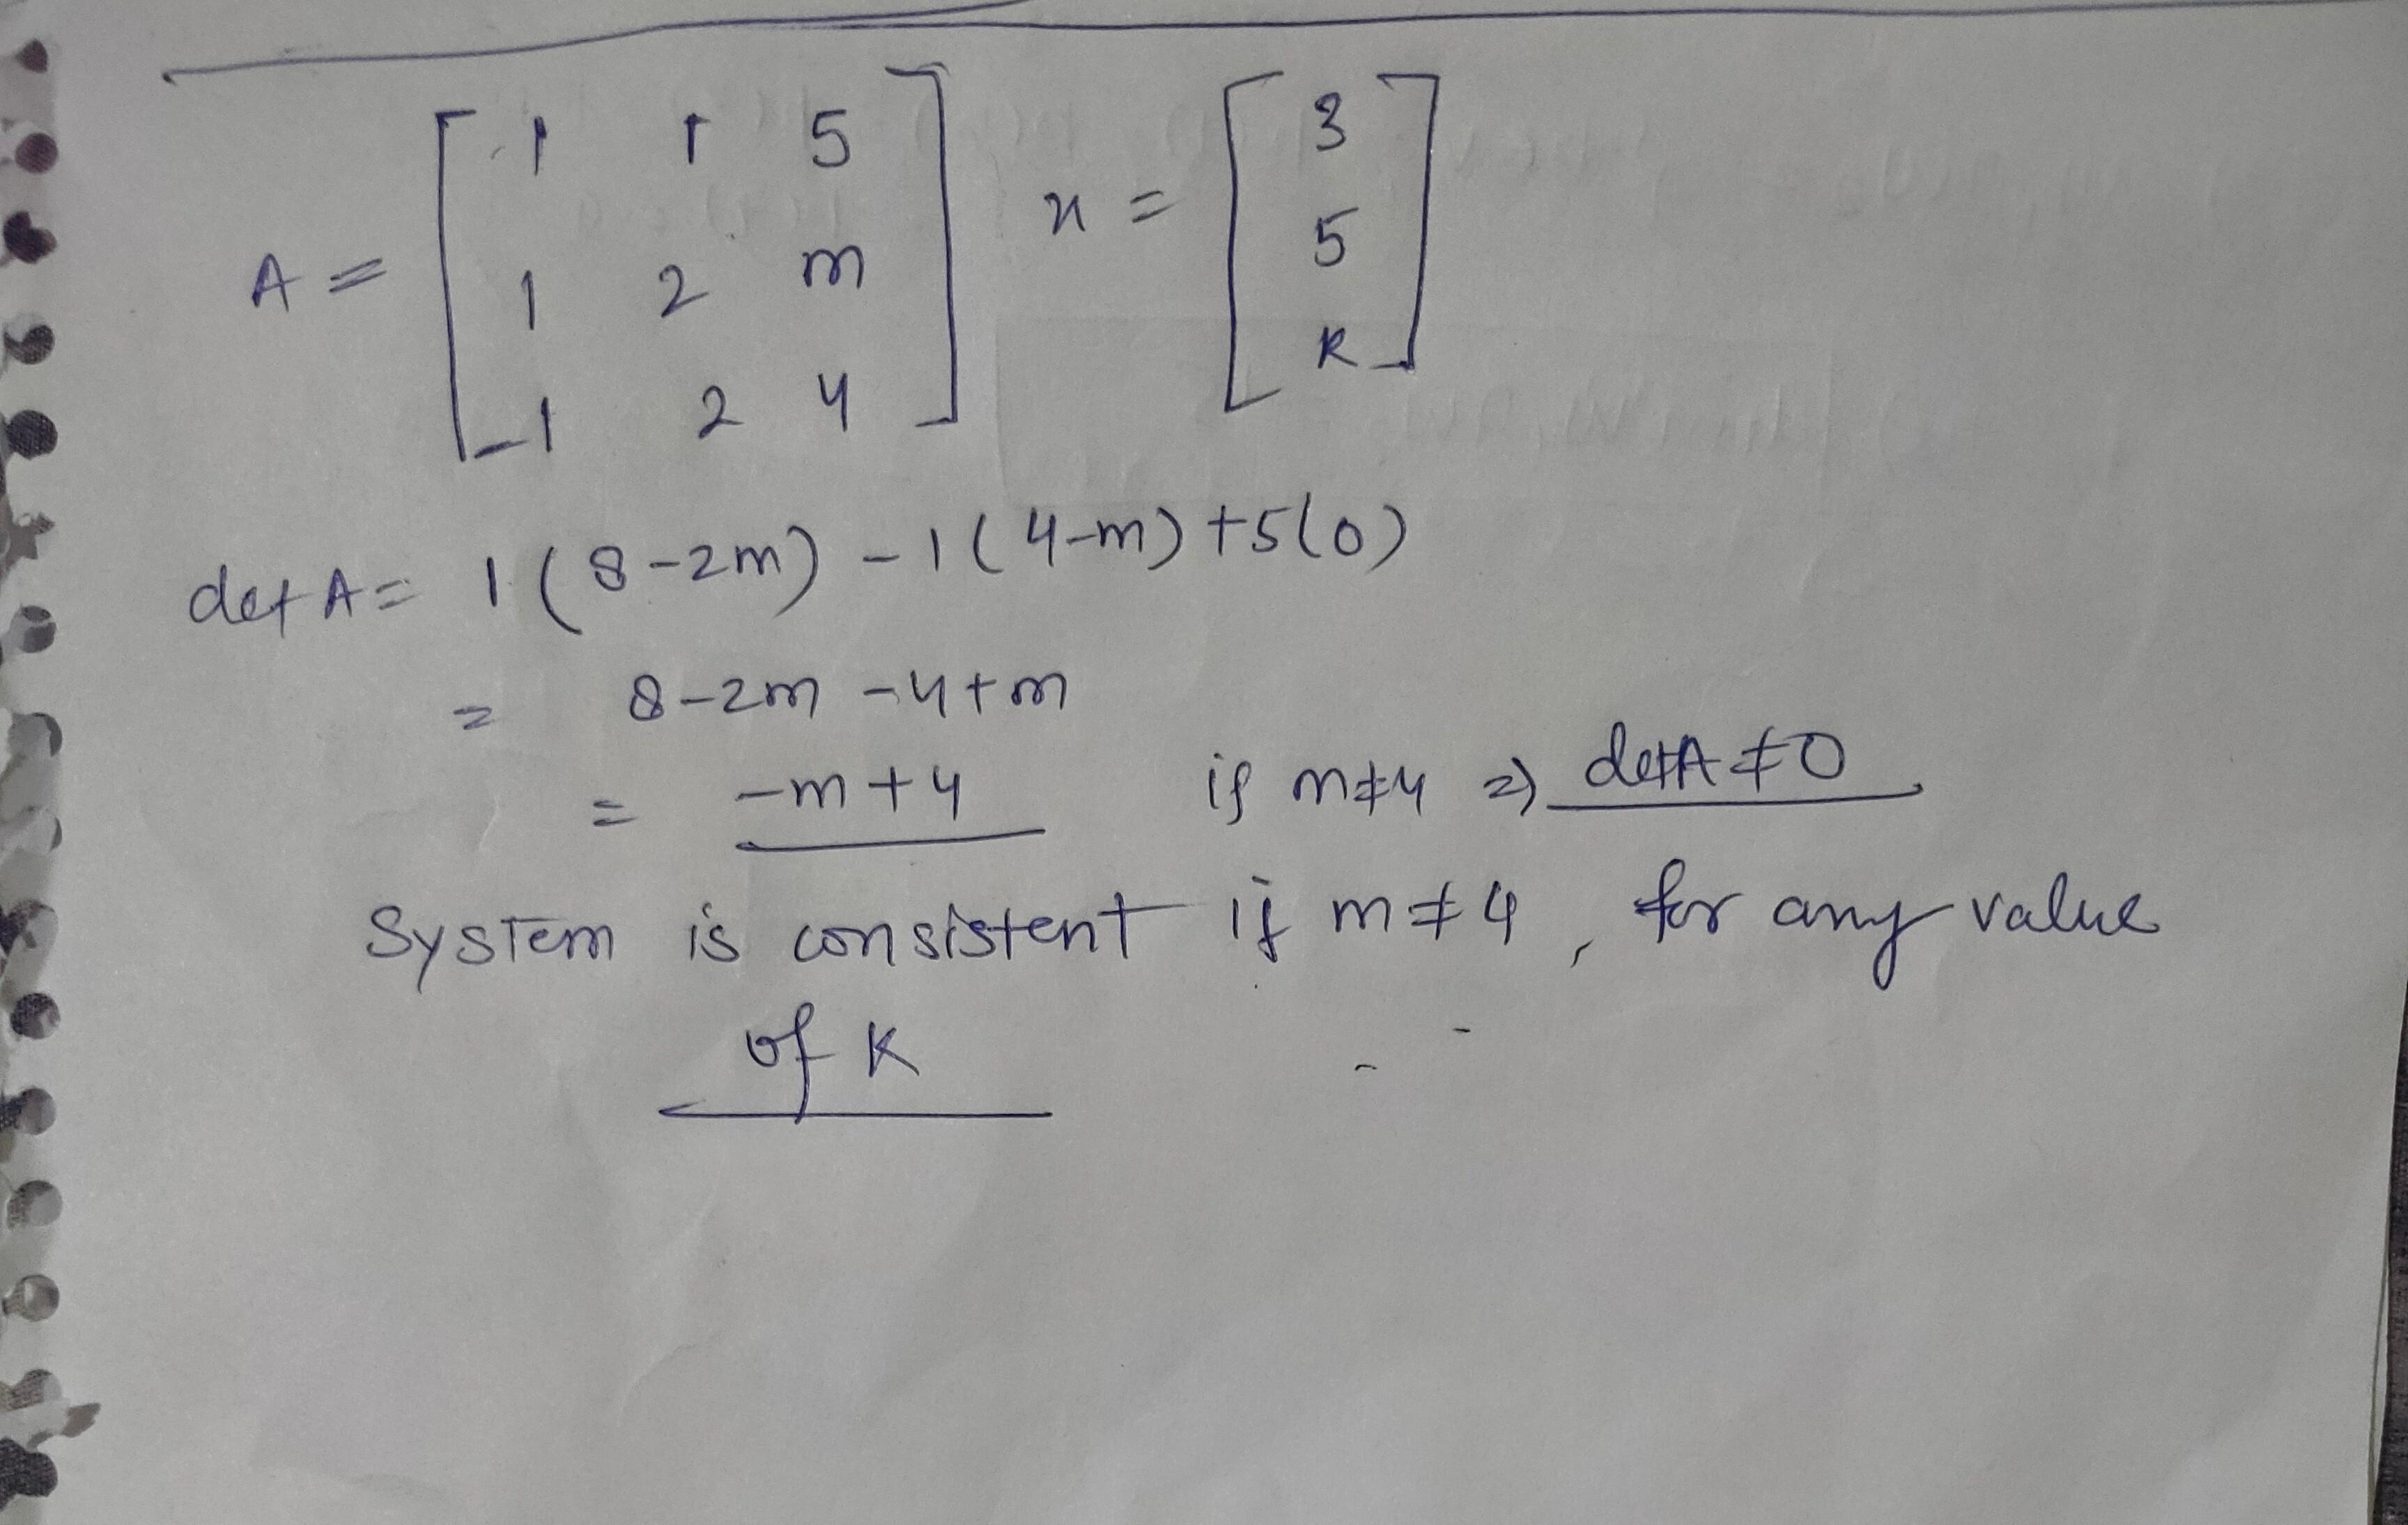 A = [ 1 1 5 ] x = [ 3 ]
[ 1 2 m ] [ 5 ]
[ 1 2 4 ] [ K ]
det A = 1 (8-2m) - 1 (4-m) + 5(0)
= 8-2m -4+m
= -m+4 if m≠4 ⇒ detA ≠0
System is consistent if m≠4, for any value
of K